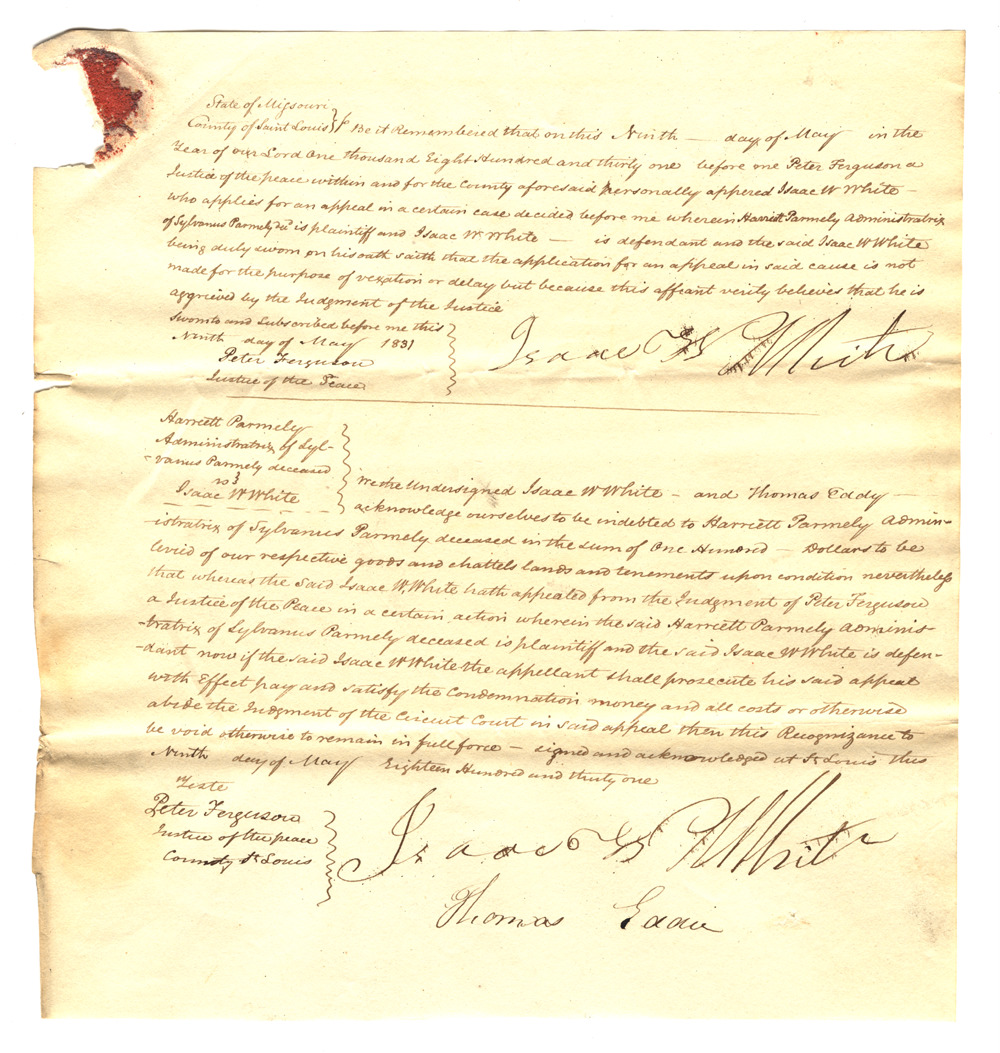 State of Missouri
County of Saint Louis } Be it Remembered that on this Ninth — day of May in the
Year of our Lord One thousand Eight Hundred and thirty one before me Peter Ferguson a
Justice of the peace within and for the County aforesaid personally appered Isaac W White —
who applies for an appeal in a certain case decided before me wherein Harriett Parmely Administratrix
of Sylvanus Parmely decd is plaintiff and Isaac W. White — is defendant and the said Isaac W White
being duly sworn on his oath saith that the application for an appeal in said cause is not
made for the purpose of vexation or delay but because this affiant verily believes that he is
aggrived by the Judgment of the Justice
Sworn to and Subscribed before me this
Ninth day of May 1831
Peter Ferguson
Justice of the Peace
Isaac W White
Harriett Parmely
Administratrix of Syl-
-vanus Parmely deceased
vs
Isaac W White
We the Undersigned Isaac W White — and Thomas Eddy —
acknowledge ourselves to be indebted to Harriett Parmely Admin-
-istratrix of Sylvanus Parmely deceased in the sum of One Hundred — Dollars to be
levied of our respective goods and chattels lands and tenements upon condition nevertheless
that whereas the said Isaac W. White hath appealed from the Judgment of Peter Ferguson
a Justice of the Peace in a certain action wherein the said Harriett Parmely Adminis-
-tratrix of Sylvanus Parmely deceased is plaintiff and the said Isaac W White is defen-
-dant now if the said Isaac W White the appellant shall prosecute his said appeal
with Effect pay and satisfy the Condemnation money and all costs or otherwise
abide the Judgment of the Circuit Court in said appeal then this Recognizance to
be void otherwise to remain in full force — signed and acknowledged at St Louis this
Ninth day of May Eighteen Hundred and thirty one
Teste
Peter Ferguson
Justice of the peace
County St Louis
Isaac W White
Thomas Eddie